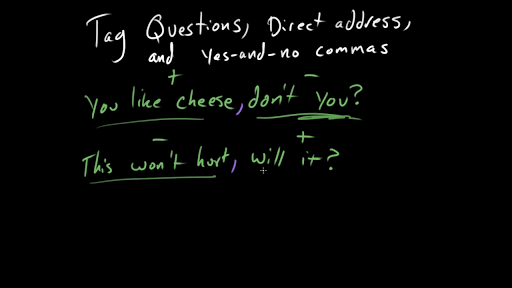 Tag Questions, Direct address,
and yes-and-no commas
+ −
You like cheese, don't you?
− +
This won't hurt, will it?